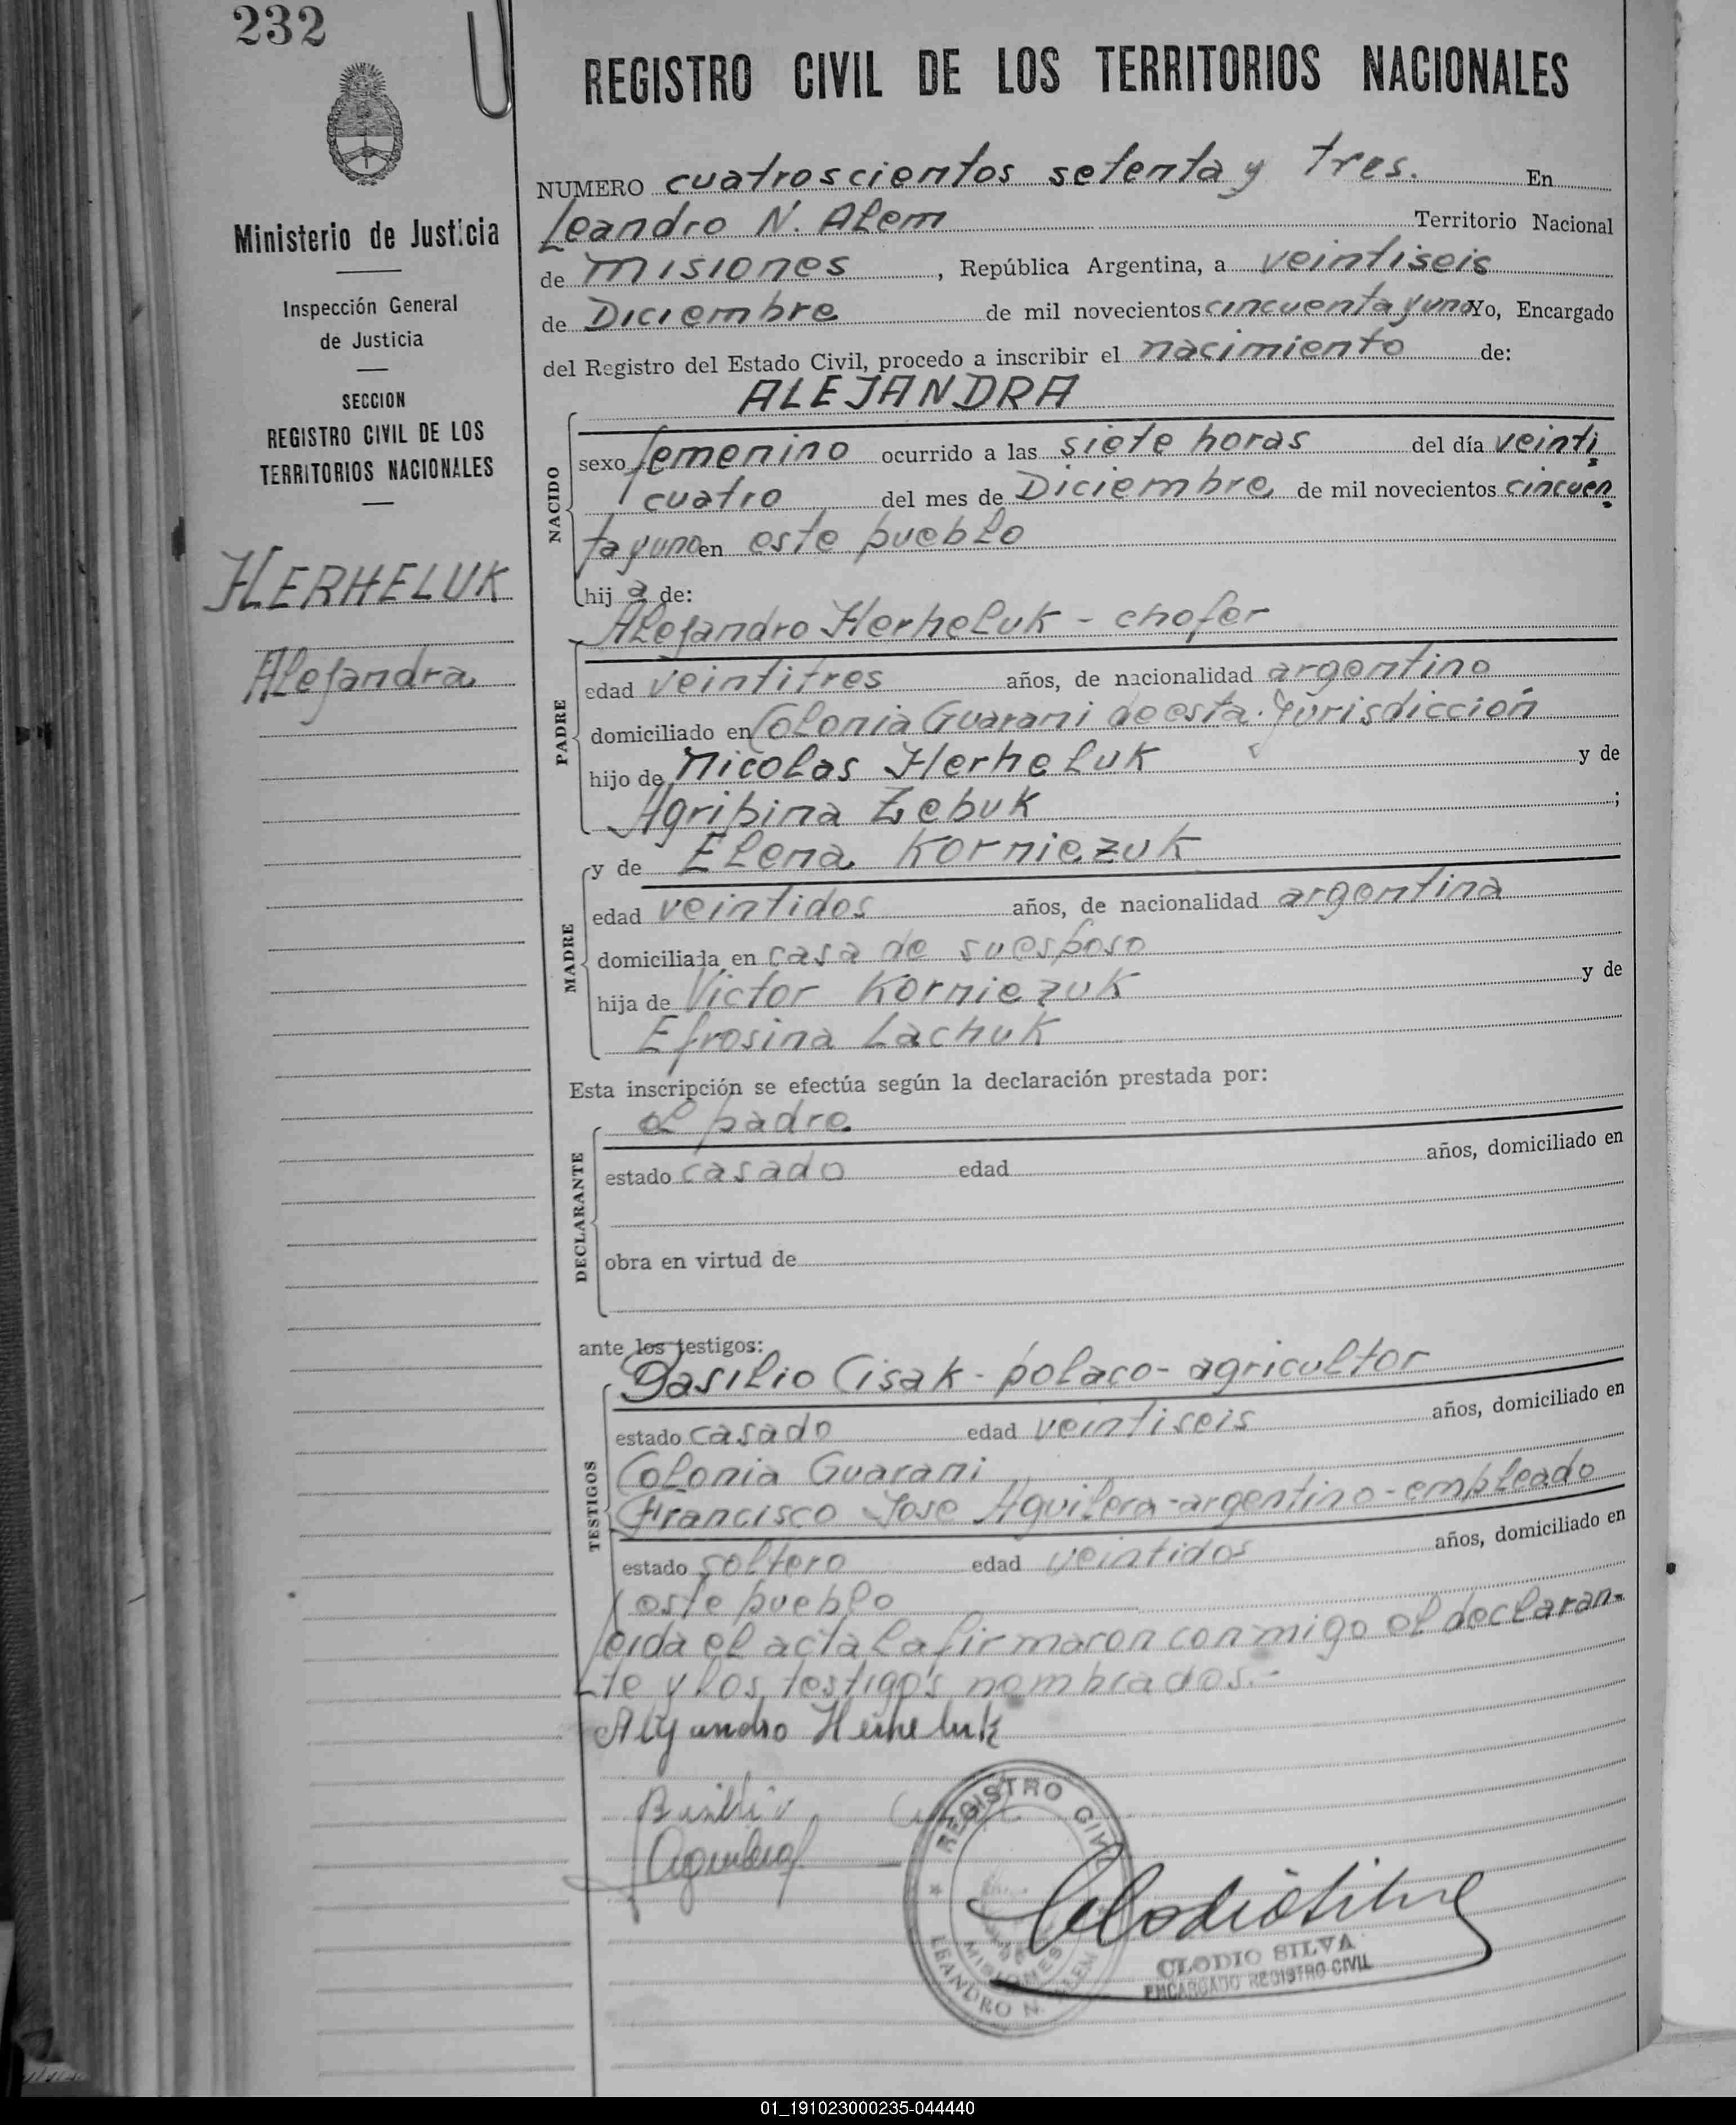 232
REGISTRO CIVIL DE LOS TERRITORIOS NACIONALES
Ministerio de Justicia
Inspección General
de Justicia
SECCION
REGISTRO CIVIL DE LOS
TERRITORIOS NACIONALES
HERHELUK
Alejandra
NUMERO cuatroscientos setenta y tres. En
Leandro N. Alem Territorio Nacional
de misiones, República Argentina, a veintiseis
de Diciembre de mil novecientos cincuenta y uno Yo, Encargado
del Registro del Estado Civil, procedo a inscribir el nacimiento de:
ALEJANDRA
NACIDO
sexo femenino ocurrido a las siete horas del día veinti
cuatro del mes de Diciembre de mil novecientos cincuen
ta y uno en este pueblo
hij a de:
Alejandro Herheluk - chofer
PADRE
edad veintitres años, de nacionalidad argentino
domiciliado en Colonia Guarani de esta Jurisdicción
hijo de Nicolas Herheluk y de
Agripina Zebuk ;
y de Elena Korniezuk
MADRE
edad veintidos años, de nacionalidad argentina
domiciliada en casa de su esposo
hija de Victor Korniezuk y de
Efrosina Lachuk
Esta inscripción se efectúa según la declaración prestada por:
el padre
DECLARANTE
estado casado edad años, domiciliado en
obra en virtud de
ante los testigos:
Basilio Cisak - polaco - agricultor
TESTIGOS
estado casado edad veintiseis años, domiciliado en
Colonia Guarani
Francisco Jose Aguilera - argentino - empleado
estado soltero edad veintidos años, domiciliado en
este pueblo
leida el acta la firmaron conmigo el declaran-
te y los testigos nombrados.-
Alejandro Herheluk
Basilio
REGISTRO CIVIL
LEANDRO N. ALEM
MISIONES
Clodio Silva
CLODIO SILVA
ENCARGADO REGISTRO CIVIL
01_191023000235-044440